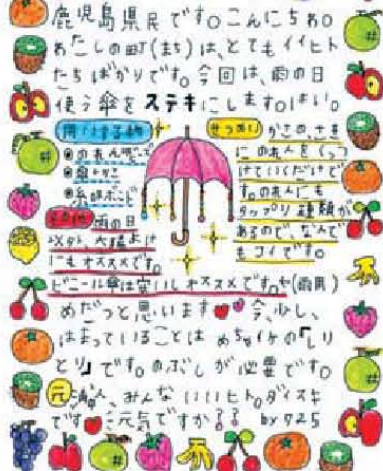 鹿児島県民です。こんにちわ。
わたしの町(まち)は、とてもイイヒト
たちばかりです。今回は、雨の日
使う傘をステキにします。はい。
用いする物
せつめい
かさの、さき
にのれんをくっつ
けていくだけで
す。のれんにも
タップリ種類が
あるので、なんで
もコイです。
雨の日
以外、太陽よけ
にもオススメです。
ビニール傘は安いしオススメです。(雨用)
めだつと思います 今、少し、
はまっていることは めちゃイケの「しり
とり」です。のぶしが必要です。
みんな いいヒト。ダイスキ
です ご元気ですか?? by 925